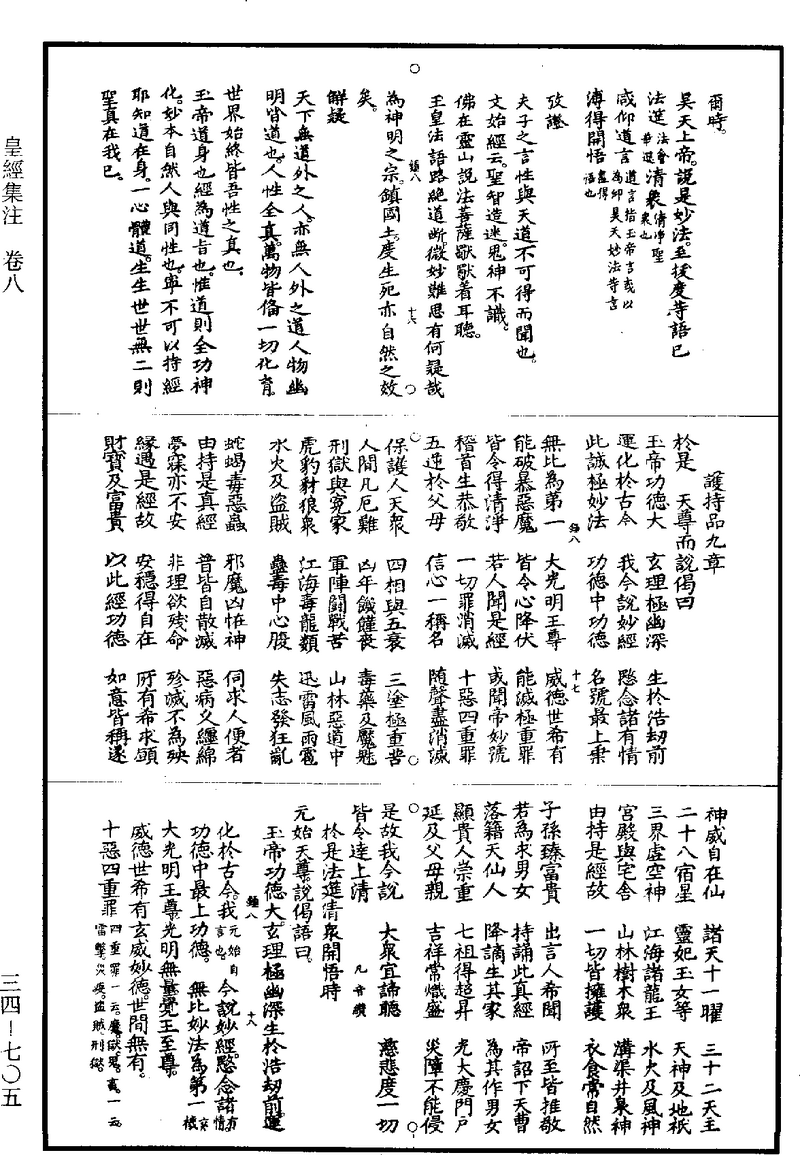 爾時。
昊天上帝。說是妙法。至援度等語已
法筵法會華筵清衆清淨聖衆也
咸仰道言道言指玉帝言或以為卽昊天妙法等言
溥得開悟盡得悟也
攷證
夫子之言性與天道不可得而聞也。
文始經云。聖智造迷。鬼神不識。
佛在靈山說法菩薩猒猒着耳聽。
玉皇法語路絶道断。微妙難思有何疑哉
為神明之宗。鎮國土。度生死亦自然之效
矣。
解疑
天下無道外之人。亦無人外之道人物幽
明皆道也。人性全真。萬物皆俻一切化育。
世界始終皆吾性之真也。
玉帝道身也經為道旨也。惟道則全功神
化。妙本自然人與同性也。寧不可以持經
耶知道在身。一心體道。生生世世無二則
聖真在我已。
十六
護持品九章
於是 天尊而說偈曰
玉帝功德大 玄理極幽深 生於浩刼前
運化於古今 我今說妙經 愍念諸有情
此誠極妙法 功德中功德 名號最上乗
無比為第一 大光明王尊 威德世希有
十七
能破暴惡魔 皆令心降伏 能滅極重罪
皆令得清淨 若人聞是經 或聞帝妙號
稽首生恭敬 一切罪消滅 十惡四重罪
五逆於父母 信心一稱名 随聲盡消滅
保護人天衆 四相與五衰 三塗極重苦
人間凡厄難 凶年饑饉喪 毒藥及魘魅
刑獄與冤家 軍陣鬬戰苦 山林惡道中
虎豹豺狼衆 江海毒龍類 迅雷風雨雹
水火及盜賊 蠱毒中心股 失志發狂亂
蛇蝎毒惡蟲 邪魔凶恠神 伺求人便者
由持是真經 普皆自散滅 惡病久纒綿
夢寐亦不安 非理欲残命 殄滅不為殃
緣遇是經故 安穩得自在 所有希求願
財寶及富貴 以此經功德 如意皆稱遂
神威自在仙 諸天十一曜 三十二天主
二十八宿星 靈妃玉女等 天神及地祇
三界虚空神 江海諸龍王 水火及風神
宮殿與宅舍 山林樹木衆 溝渠井泉神
由持是經故 一切皆擁護 衣食常自然
子孫臻富貴 出言人希聞 所至皆推敬
若為求男女 持誦此真經 帝詔下天曹
落籍天仙人 降謫生其家 為其作男女
顯貴人崇重 七祖得超昇 光大慶門户
延及父母親 吉祥常熾盛 災障不能侵
是故我今說 大衆宜諦聽 慈悲度一切
皆令達上清
於是法筵清衆開悟時
元始天尊。說偈語曰。
玉帝功德大。玄理極幽深生於浩刼前。運
十八
化於古今。我元始自言也今說妙經。愍念諸有情
功德中最上功德。 無比妙法為第一
大光明王尊。光明無量。覺王至尊。
威德世希有玄威妙德。世間無有。
十惡四重罪
皇經集注 卷八
三四—七〇五